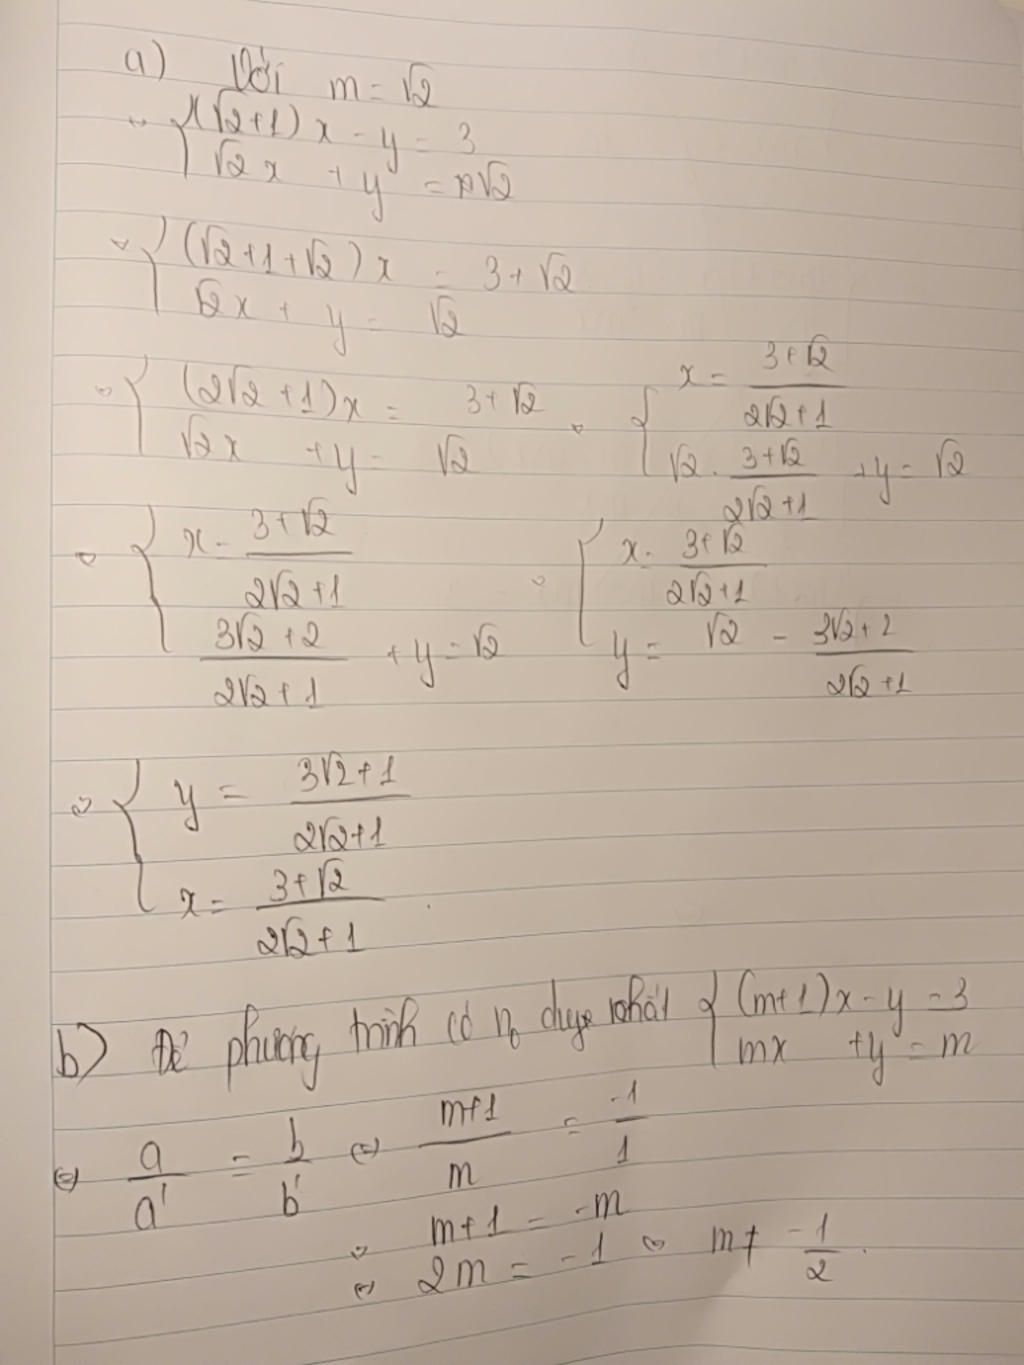 a) Với m = √2
⇔ { (√2+1)x - y = 3
√2x + y = √2
⇔ { (√2+1+√2)x = 3+√2
√2x + y = √2
⇔ { (2√2+1)x = 3+√2
√2x + y = √2
⇔ { x = (3+√2)/(2√2+1)
√2 . (3+√2)/(2√2+1) + y = √2
⇔ { x = (3+√2)/(2√2+1)
(3√2+2)/(2√2+1) + y = √2
⇔ { x = (3+√2)/(2√2+1)
y = √2 - (3√2+2)/(2√2+1)
⇔ { y = (3√2+1)/(2√2+1)
x = (3+√2)/(2√2+1)
b) Để phương trình có n0 duy nhất { (m+1)x - y = 3
mx + y = m
⇔ a/a' = b/b' ⇔ (m+1)/m = -1/1
⇔ m+1 = -m
⇔ 2m = -1 ⇔ m ≠ -1/2.